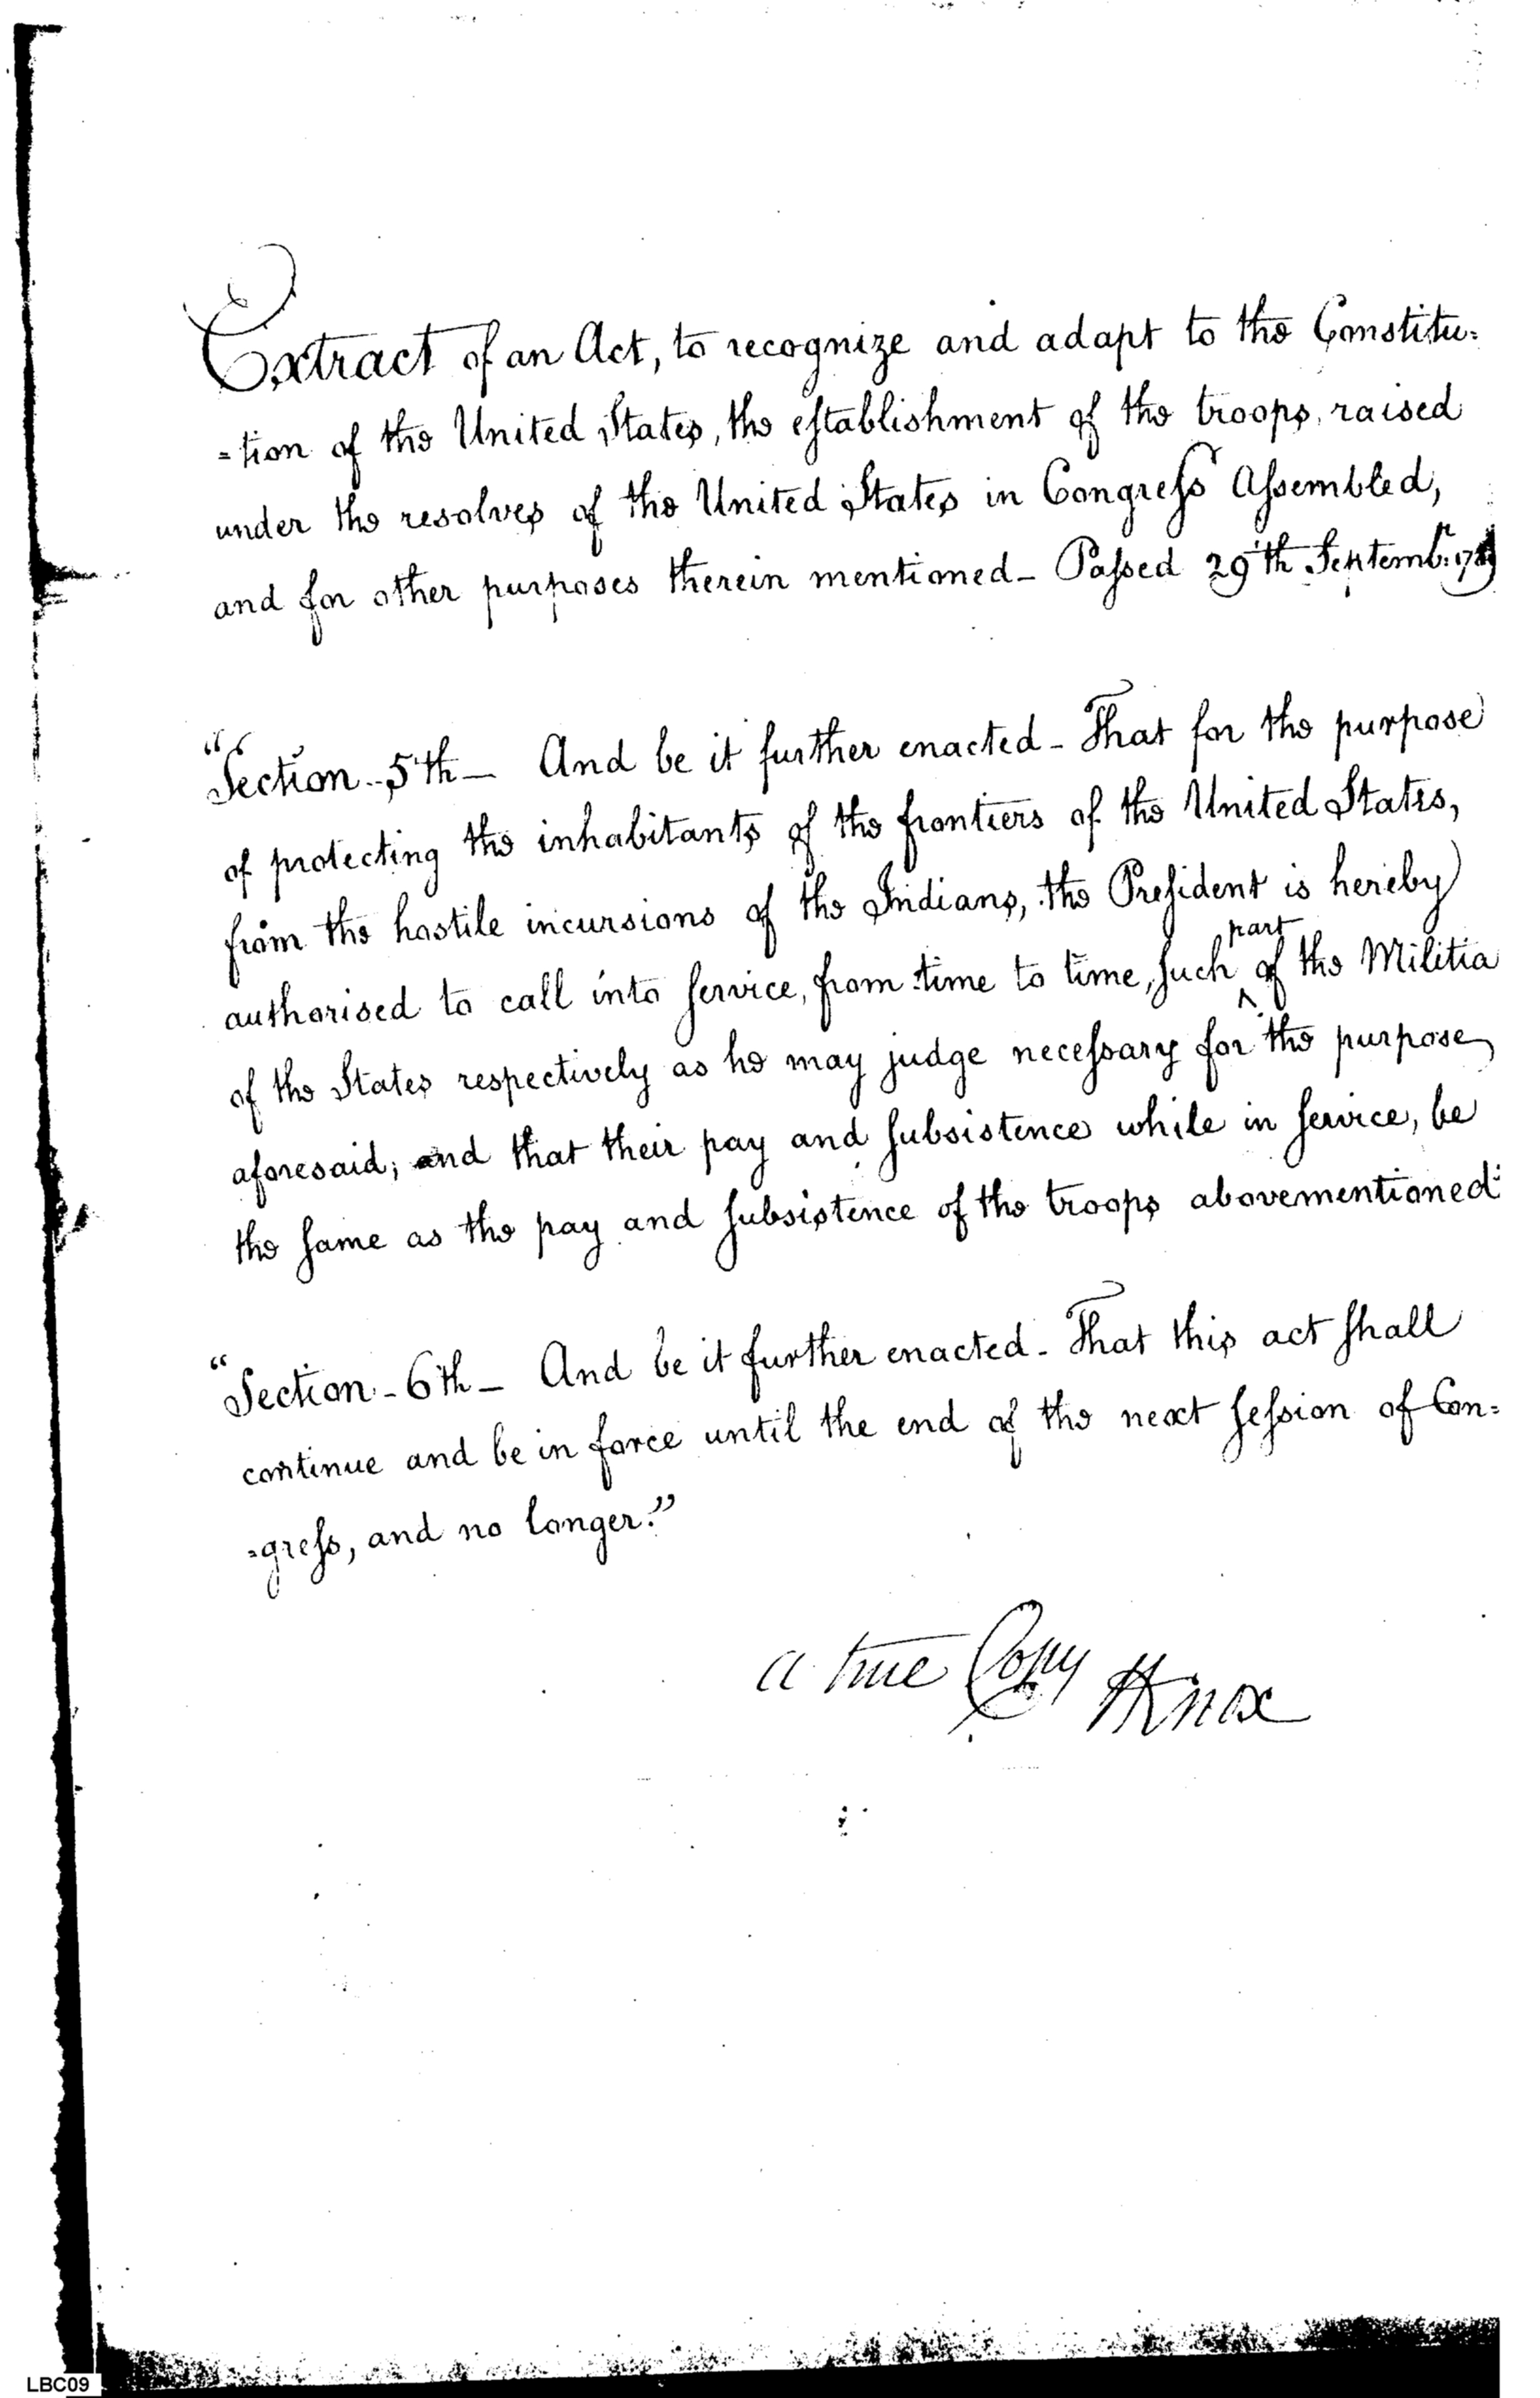 Extract of an Act, to recognize and adapt to the Constitu=
=tion of the United States, the establishment of the troops raised
under the resolves of the United States in Congress Assembled,
and for other purposes therein mentioned_ Passed 29th Septembr. 1789
"Section 5th_ And be it further enacted_ That for the purpose
of protecting the inhabitants of the frontiers of the United States,
from the hostile incursions of the Indians, the President is hereby
part
authorised to call into service, from time to time, such ^ of the Militia
of the States respectively as he may judge necessary for the purpose
aforesaid; and that their pay and subsistence while in service, be
the same as the pay and subsistence of the troops abovementioned:
"Section_6th_ And be it further enacted_ That this act shall
continue and be in force until the end of the next session of Con=
=gress, and no longer."
a true Copy HKnox
LBC09